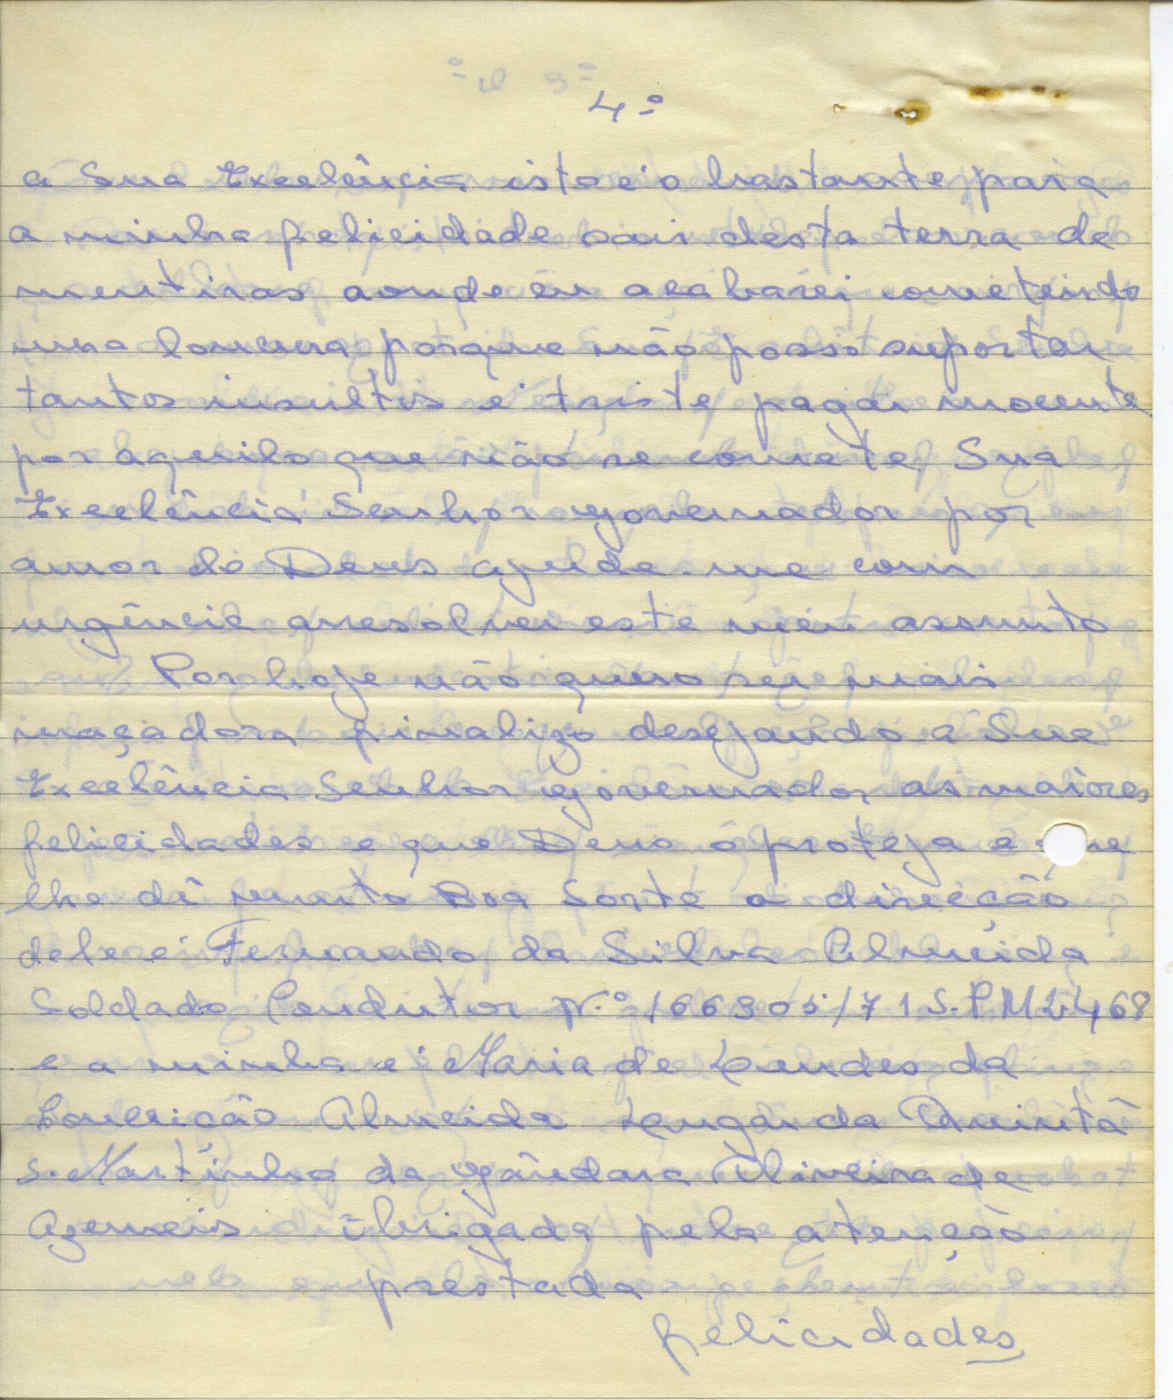 4º
a Sua Excelência isto é o bastante para
a minha felicidade sair desta terra de
mentiras aonde eu acabarei cometendo
uma loucura porque não posso suportar
tantos insultos é triste pagar inocente
por aquilo que não se comete Sua
Excelência Senhor governador por
amor de Deus ajude-me com
urgência a resolver este meu assunto
Por hoje não quero ser mais
maçadora finalizo desejando a Sua
Excelência Senhor governador as maiores
felicidades e que Deus o proteja e que
lhe dê muita Boa Sorte a direcção
dele é Fernando da Silva Almeida
Soldado Condutor Nº 166905/71 S.P.M 2468
e a minha é Maria de Lurdes da
Conceição Almeida Lugar da Quintã
S. Martinho da gândara Oliveira de
Azemeis obrigada pela atenção
prestada
felicidades